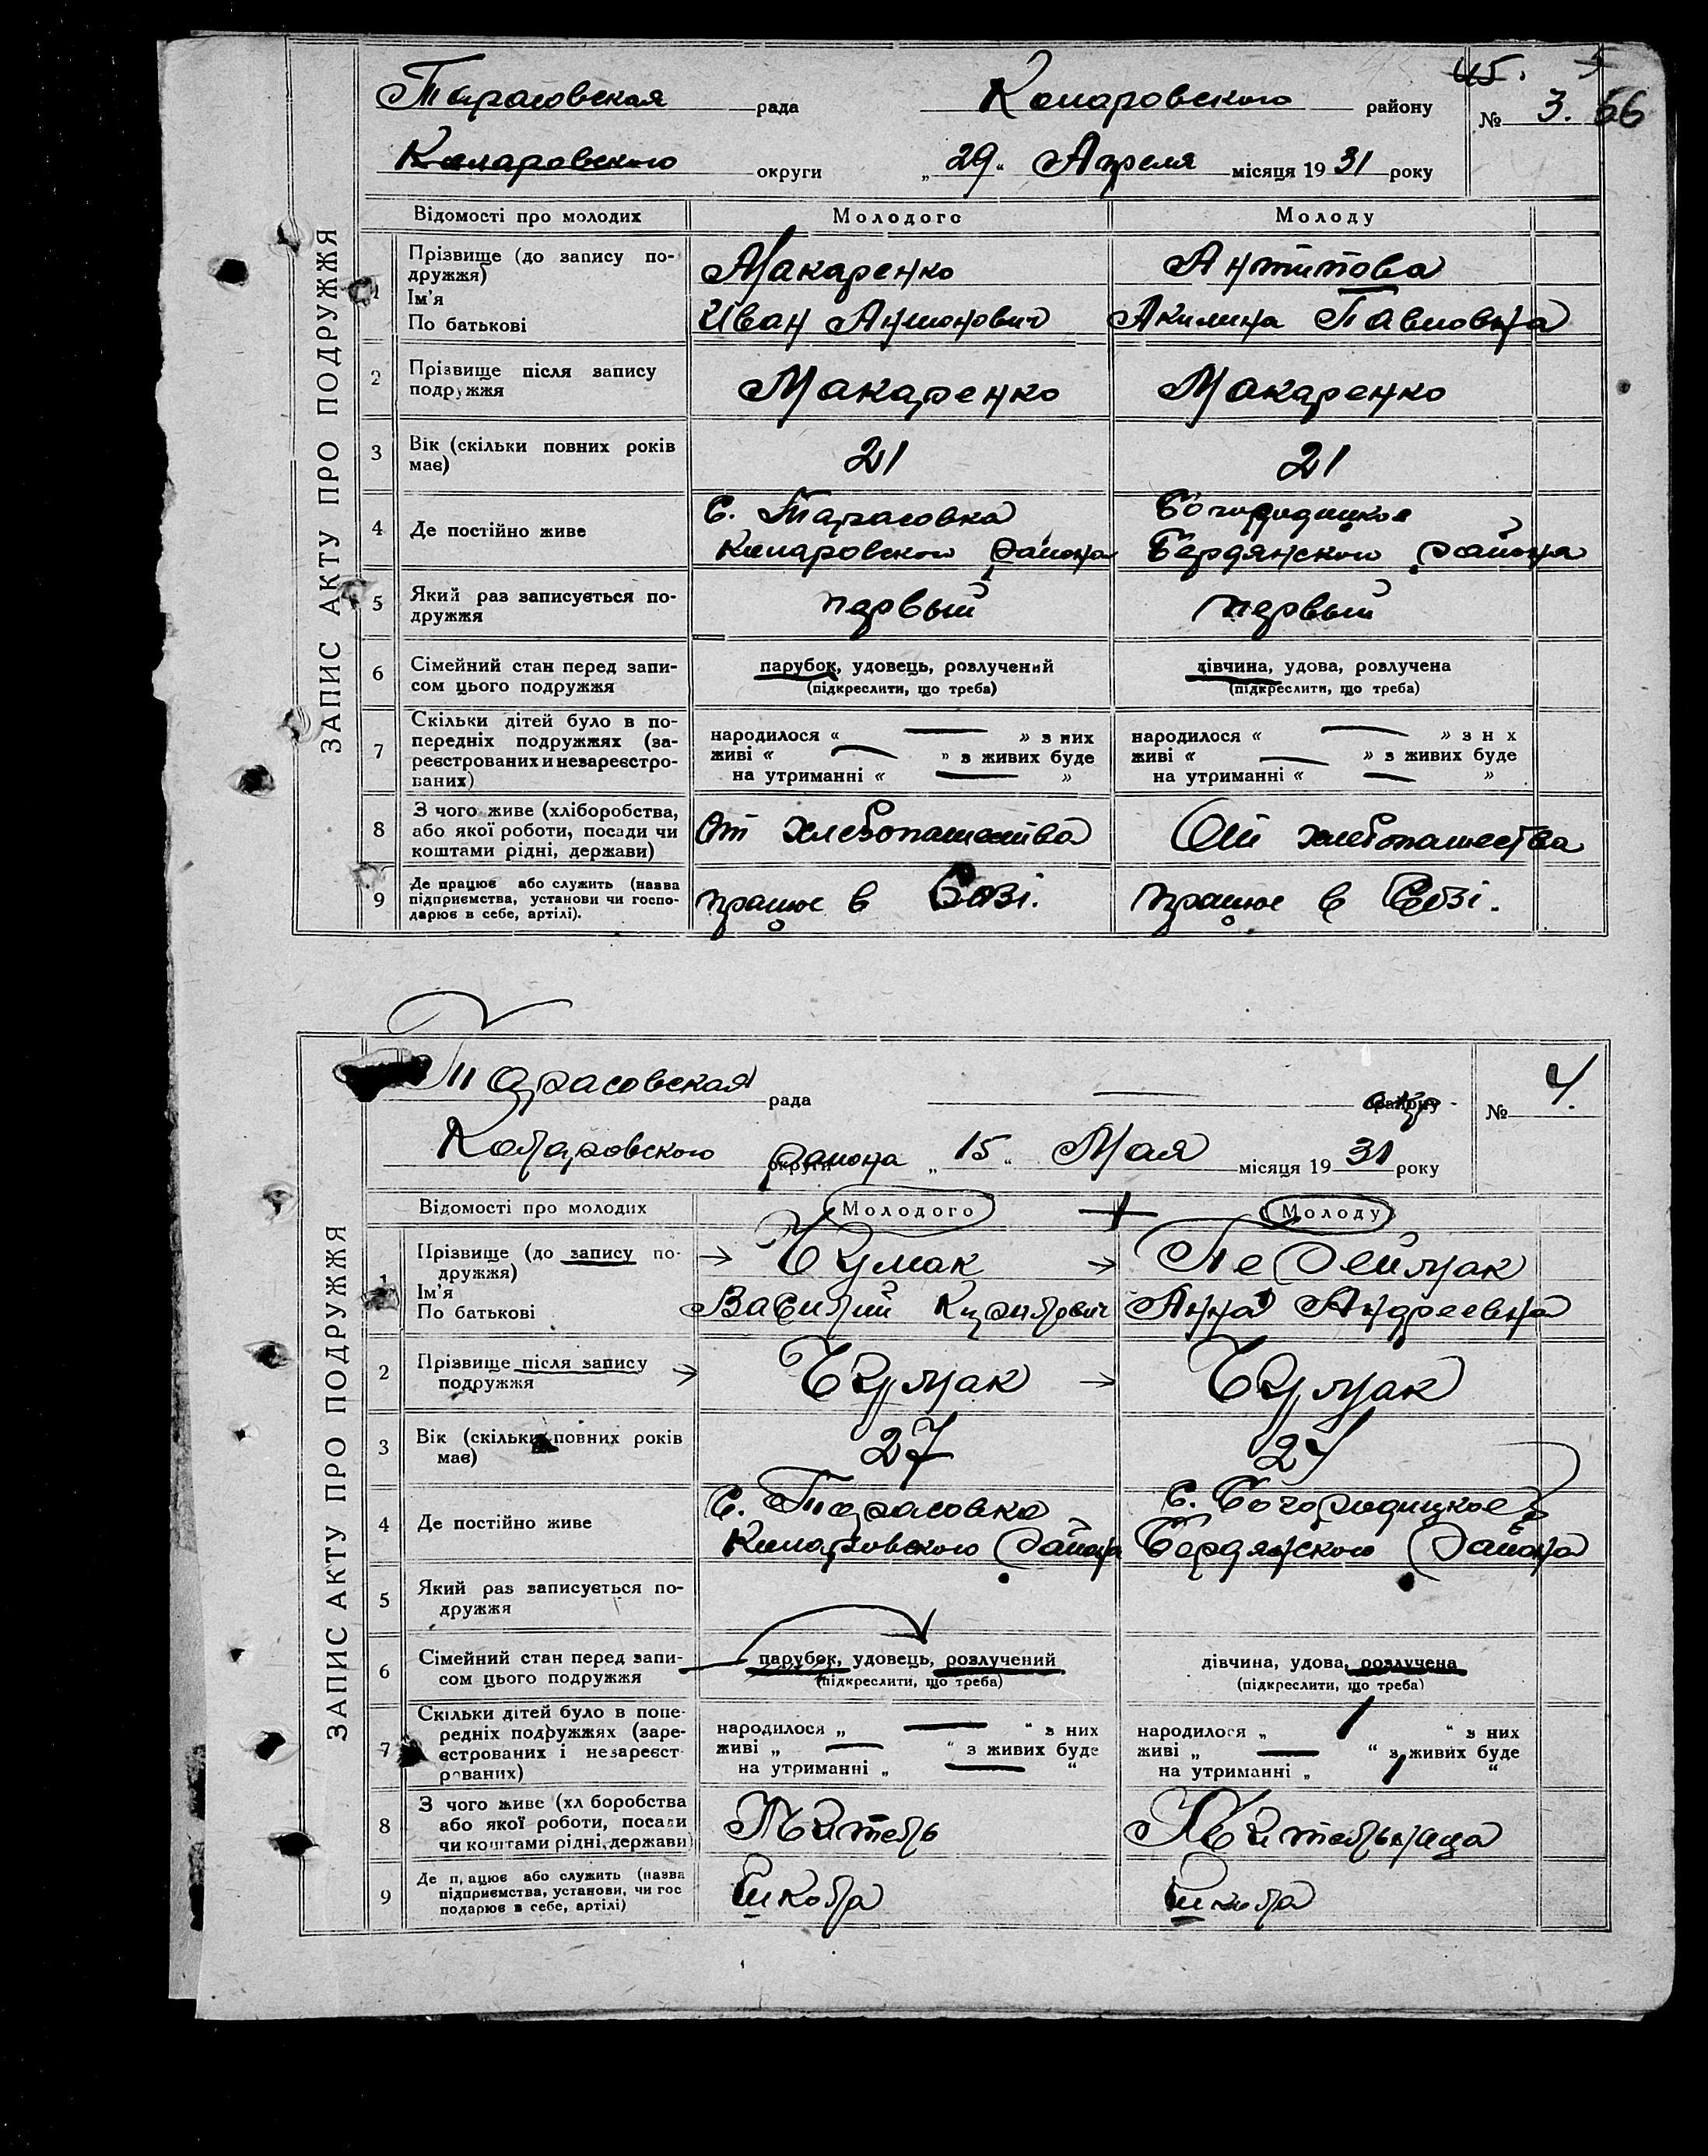 45. 5
Тарасовская рада Коларовского району № 3. 66
Коларовского округи „29“ Апреля місяця 1931 року
ЗАПИС АКТУ ПРО ПОДРУЖЖЯ
Відомості про молодих Молодого Молоду
1 Прізвище (до запису по-
дружжя) Макаренко Антипова
Ім'я
По батькові Иван Антонович Акилина Павловна
2 Прізвище після запису
подружжя Макаренко Макаренко
3 Вік (скільки повних років
має) 21 21
4 Де постійно живе с. Тарасовка Богородицкое
Коларовского района Бердянского района
5 Який раз записується по-
дружжя первый первый
6 Сімейний стан перед запи- парубок, удовець, розлучений дівчина, удова, розлучена
сом цього подружжя (підкреслити, що треба) (підкреслити, що треба)
7 Скільки дітей було в по-
передніх подружжях (за- народилося « — » з них народилося « — » з н х
реєстрованих и незареєстро- живі « — » з живих буде живі « — » з живих буде
ваних) на утриманні « — » на утриманні « — »
8 З чого живе (хліборобства,
або якої роботи, посади чи От хлебопашества От хлебопашества
коштами рідні, держави)
9 Де працює або служить (назва
підприємства, установи чи госпо- працює в Созі. працює в Созі.
дарює в себе, артілі).
Тарасовская рада — району № 4.
Коларовского района округи „15“ Мая місяця 1931 року
ЗАПИС АКТУ ПРО ПОДРУЖЖЯ
Відомості про молодих Молодого + Молоду
1 Прізвище (до запису по- → Чумак →
дружжя)
Ім'я
По батькові Василий Кирилович Анна Андреевна
2 Прізвище після запису → Чумак → Чумак
подружжя
3 Вік (скільки повних років
має) 27 27
4 Де постійно живе с. Тарасовка с. Богородицкое
Коларовского района Бердянского района
5 Який раз записується по-
дружжя
6 Сімейний стан перед запи- парубок, удовець, розлучений дівчина, удова, розлучена
сом цього подружжя (підкреслити, що треба) (підкреслити, що треба)
7 Скільки дітей було в попе-
редніх подружжях (заре- народилося „ — “ з них народилося „ 1 “ з них
єстрованих і незареєст- живі „ — “ з живих буде живі „ — “ з живих буде
рованих) на утриманні „ — “ на утриманні „ 1 “
8 З чого живе (хл боробства
або якої роботи, посади Учитель Учительница
чи коштами рідні, держави)
9 Де п, ацює або служить (назва
підприємства, установи, чи гос Школа школа
подарює в себе, артілі)